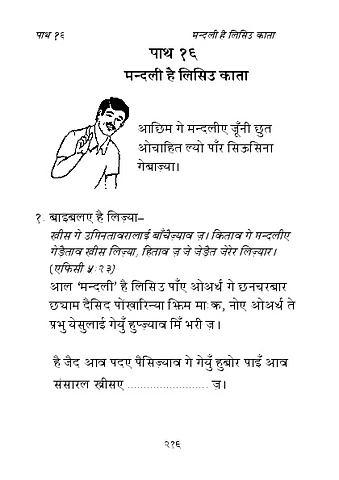 पाथ १६ मन्दली है लिसिउ काता
पाथ १६
मन्दली है लिसिउ काता
आछिम गे मन्दलीए जूँनी छुत
ओचाहित ल्यो पाँर सिऊसिना
गेबाज़्या।
१. बाइबलए है लिज़्या–
ख्रीस गे उगिनतावरालाई बाँचैज़्याव ज़। किताव गे मन्दलीए
गेङैताव ख्रीस लिज़्या, हिताव ज़ जे जेङैत जेरेर लिज़्यार।
(एफिसी ५:२३)
आल 'मन्दली' है लिसिउ पाँए ओअर्थ गे छनचरबार
छ्याम दैसिद पोंखारिन्या झिम माःक, नोए ओअर्थ ते
प्रभु येसुलाई गेयुँ हुप्ज़्याव मिँ भरी ज़।
है जैद आव पदए पैसिज़्याव गे गेयुँ हुबोर पाइँ आव
संसारल ख्रीसए ........................ ज़।
२१६